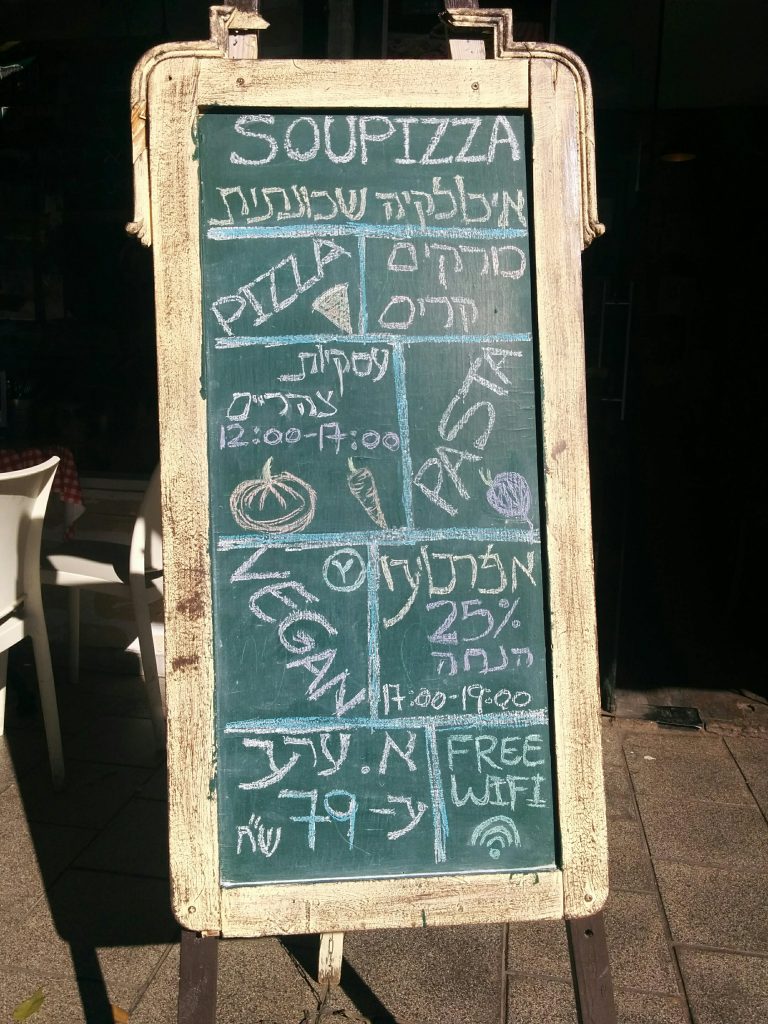 SOUPIZZA
איטלקיה שכונתית
PIZZA
מרקים
קרים
עסקיות
צהריים
12:00-17:00
PASTA
VEGAN
אפרטיבו
25%
הנחה
17:00-19:00
א. ערב
ב-79
ש"ח
FREE
WIFI